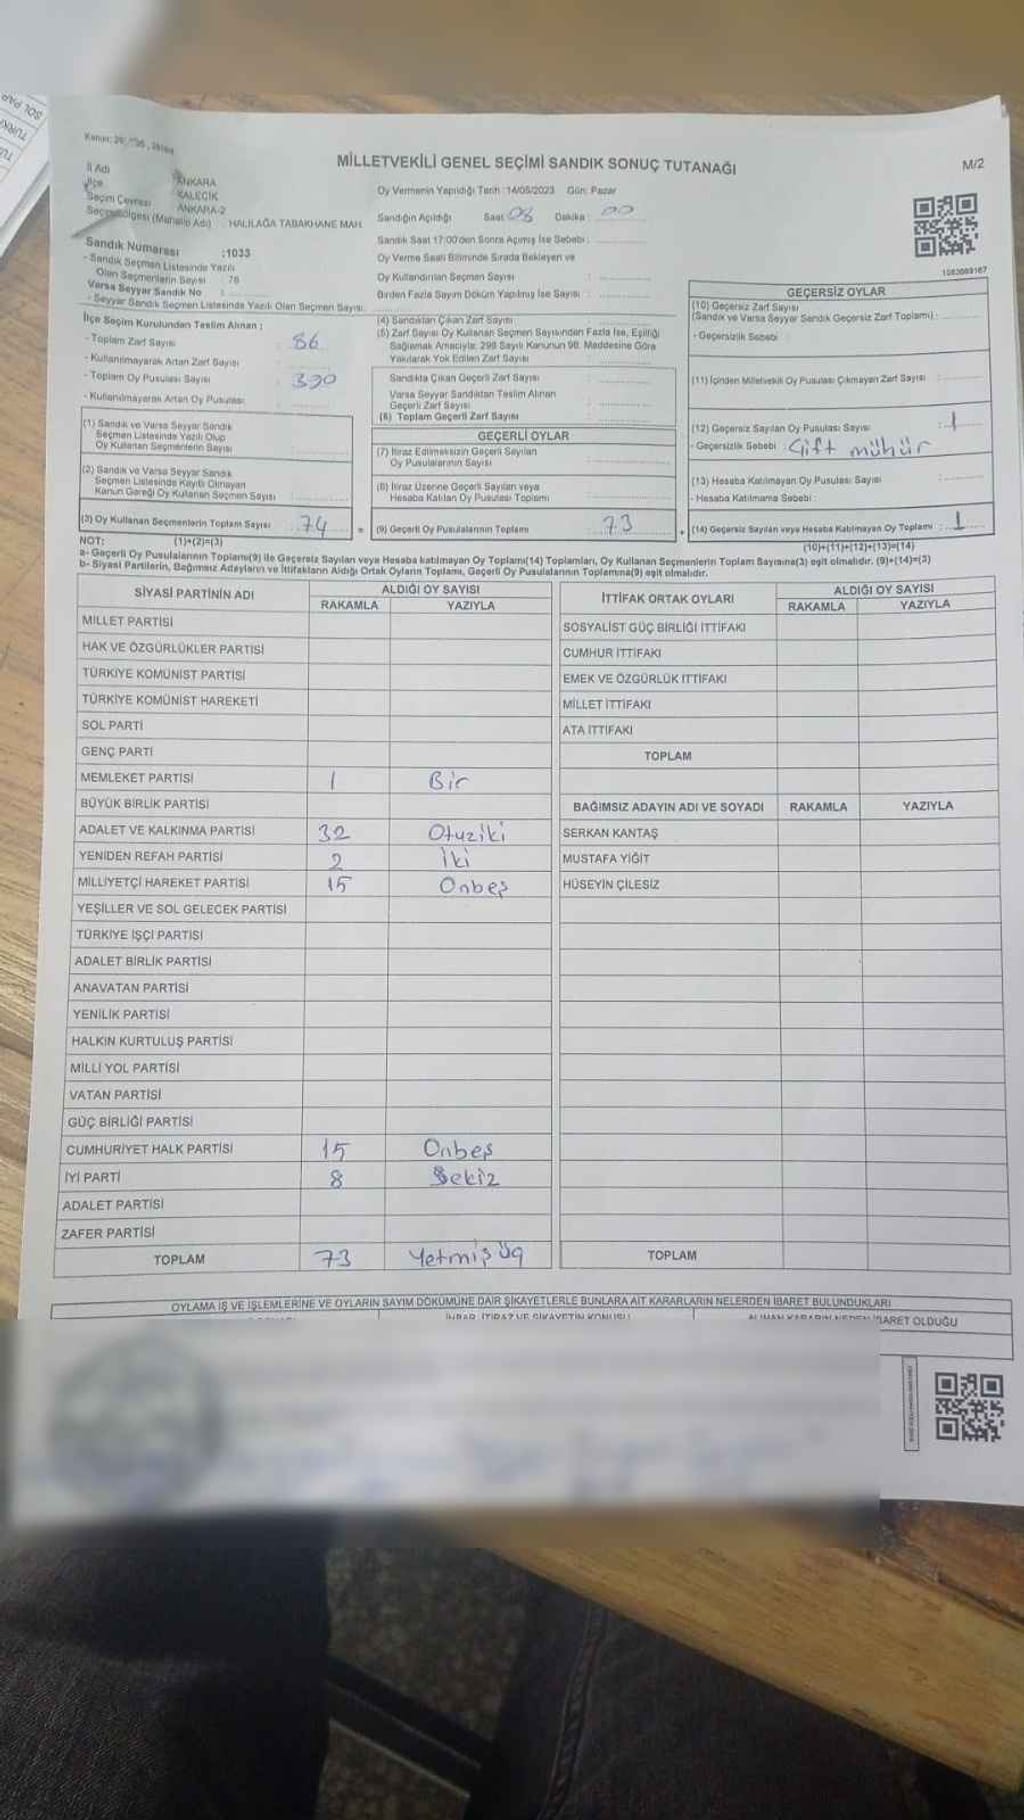 MİLLETVEKİLİ GENEL SEÇİMİ SANDIK SONUÇ TUTANAĞI
M/2
İl Adı ANKARA
İlçe KALECİK
Seçim Çevresi ANKARA-2
Seçim Bölgesi (Mahalle Adı) : HALİLAĞA TABAKHANE MAH.
Oy Vermenin Yapıldığı Tarih :14/05/2023 Gün: Pazar
Sandığın Açıldığı Saat: 08 Dakika : 00
Sandık Saat 17:00'den Sonra Açılmış İse Sebebi :
Oy Verme Saati Bitiminde Sırada Bekleyen ve
Oy Kullandırılan Seçmen Sayısı :
Birden Fazla Sayım Döküm Yapılmış İse Sayısı :
Sandık Numarası :1033
- Sandık Seçmen Listesinde Yazılı
Olan Seçmenlerin Sayısı : 76
Varsa Seyyar Sandık No :
- Seyyar Sandık Seçmen Listesinde Yazılı Olan Seçmen Sayısı
İlçe Seçim Kurulundan Teslim Alınan :
- Toplam Zarf Sayısı : 86
- Kullanılmayarak Artan Zarf Sayısı :
- Toplam Oy Pusulası Sayısı : 390
- Kullanılmayarak Artan Oy Pusulası :
(1) Sandık ve Varsa Seyyar Sandık
Seçmen Listesinde Yazılı Olup
Oy Kullanan Seçmenlerin Sayısı
(2) Sandık ve Varsa Seyyar Sandık
Seçmen Listesinde Kayıtlı Olmayan
Kanun Gereği Oy Kullanan Seçmen Sayısı :
(3) Oy Kullanan Seçmenlerin Toplam Sayısı : 74
(4) Sandıktan Çıkan Zarf Sayısı :
(5) Zarf Sayısı Oy Kullanan Seçmen Sayısından Fazla İse, Eşitliği
Sağlamak Amacıyla; 298 Sayılı Kanunun 98. Maddesine Göre
Yakılarak Yok Edilen Zarf Sayısı :
Sandıkta Çıkan Geçerli Zarf Sayısı :
Varsa Seyyar Sandıktan Teslim Alınan
Geçerli Zarf Sayısı :
(6) Toplam Geçerli Zarf Sayısı :
GEÇERLİ OYLAR
(7) İtiraz Edilmeksizin Geçerli Sayılan
Oy Pusulalarının Sayısı :
(8) İtiraz Üzerine Geçerli Sayılan veya
Hesaba Katılan Oy Pusulası Toplamı :
= (9) Geçerli Oy Pusulalarının Toplamı : 73 +
1083089167
GEÇERSİZ OYLAR
(10) Geçersiz Zarf Sayısı
(Sandık ve Varsa Seyyar Sandık Geçersiz Zarf Toplamı) :
- Geçersizlik Sebebi :
(11) İçinden Milletvekili Oy Pusulası Çıkmayan Zarf Sayısı :
(12) Geçersiz Sayılan Oy Pusulası Sayısı : 1
- Geçersizlik Sebebi : Çift mühür
(13) Hesaba Katılmayan Oy Pusulası Sayısı :
- Hesaba Katılmama Sebebi :
(14) Geçersiz Sayılan veya Hesaba Katılmayan Oy Toplamı : 1
NOT: (1)+(2)=(3) (10)+(11)+(12)+(13)=(14)
a- Geçerli Oy Pusulalarının Toplamı(9) ile Geçersiz Sayılan veya Hesaba katılmayan Oy Toplamı(14) Toplamları, Oy Kullanan Seçmenlerin Toplam Sayısına(3) eşit olmalıdır. (9)+(14)=(3)
b- Siyasi Partilerin, Bağımsız Adayların ve İttifakların Aldığı Ortak Oyların Toplamı, Geçerli Oy Pusulalarının Toplamına(9) eşit olmalıdır.
SİYASİ PARTİNİN ADI ALDIĞI OY SAYISI
RAKAMLA YAZIYLA
MİLLET PARTİSİ
HAK VE ÖZGÜRLÜKLER PARTİSİ
TÜRKİYE KOMÜNİST PARTİSİ
TÜRKİYE KOMÜNİST HAREKETİ
SOL PARTİ
GENÇ PARTİ
MEMLEKET PARTİSİ 1 Bir
BÜYÜK BİRLİK PARTİSİ
ADALET VE KALKINMA PARTİSİ 32 Otuziki
YENİDEN REFAH PARTİSİ 2 İki
MİLLİYETÇİ HAREKET PARTİSİ 15 Onbeş
YEŞİLLER VE SOL GELECEK PARTİSİ
TÜRKİYE İŞÇİ PARTİSİ
ADALET BİRLİK PARTİSİ
ANAVATAN PARTİSİ
YENİLİK PARTİSİ
HALKIN KURTULUŞ PARTİSİ
MİLLİ YOL PARTİSİ
VATAN PARTİSİ
GÜÇ BİRLİĞİ PARTİSİ
CUMHURİYET HALK PARTİSİ 15 Onbeş
İYİ PARTİ 8 Sekiz
ADALET PARTİSİ
ZAFER PARTİSİ
TOPLAM 73 Yetmiş üç
İTTİFAK ORTAK OYLARI ALDIĞI OY SAYISI
RAKAMLA YAZIYLA
SOSYALİST GÜÇ BİRLİĞİ İTTİFAKI
CUMHUR İTTİFAKI
EMEK VE ÖZGÜRLÜK İTTİFAKI
MİLLET İTTİFAKI
ATA İTTİFAKI
TOPLAM
BAĞIMSIZ ADAYIN ADI VE SOYADI RAKAMLA YAZIYLA
SERKAN KANTAŞ
MUSTAFA YİĞİT
HÜSEYİN ÇİLESİZ
TOPLAM
OYLAMA İŞ VE İŞLEMLERİNE VE OYLARIN SAYIM DÖKÜMÜNE DAİR ŞİKAYETLERLE BUNLARA AİT KARARLARIN NELERDEN İBARET BULUNDUKLARI
İHBAR, İTİRAZ VE ŞİKAYETİN KONUSU
ALINAN KARARIN NEDEN İBARET OLDUĞU